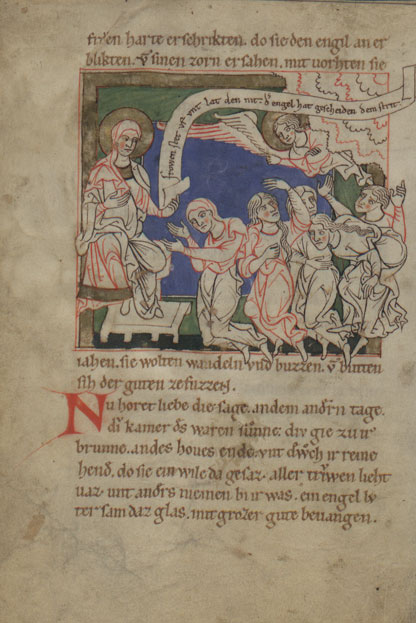 frŏen harte erschrikten. do sie den engil an er
blikten. v̄ sinen zorn ersahen. mit vorhten sie
frowen stet vf vnt lat den nit. d͛ engel hat gescheiden den strit.
iahen. sie wolten wandeln vnd buzzen. v̄ butten
sih der guten zefuzzen.
Nu horet liebe die sage. an dem andrn tage.
do was div gie zv ir
brunne. an des houes ende. vnt ir reine
hend. do sie ein wile da gesaz. aller triwen lieht
vaz. vnt andrs niemen bi ir was. ein engel
ter sam daz glas. mit grozer gute bevangen.